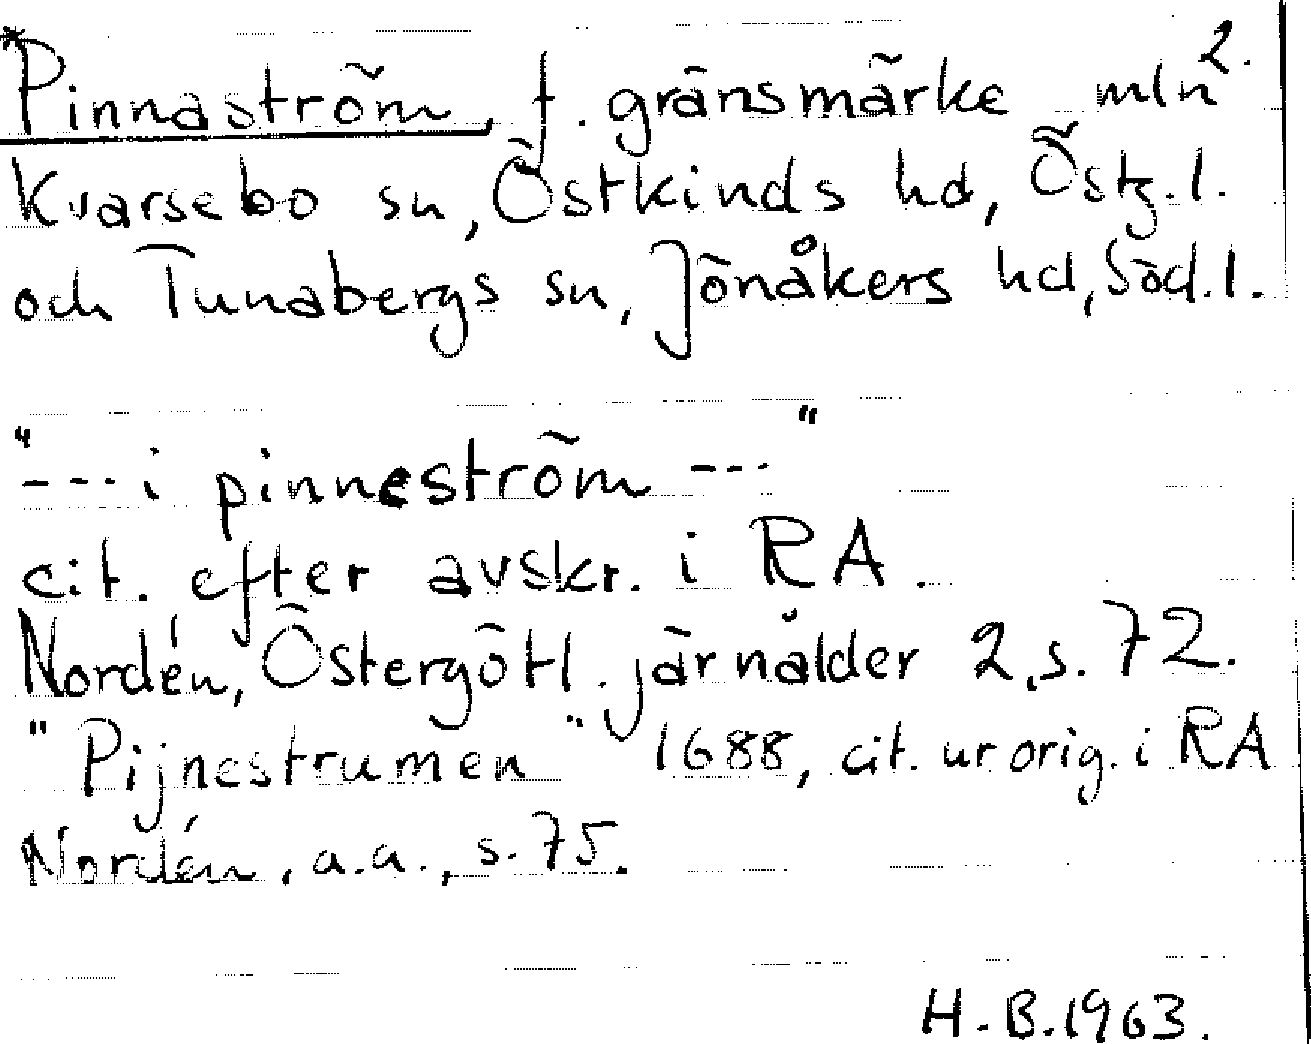 *Pinnaström, f. gränsmärke mln 2.
Kvarsebo sn, Östkinds hd, Östg.l.
och Tunabergs sn, Jönåkers hd, Söd.l.
"---i pinneström ---"
cit. efter avskr. i RA.
Nordén, Östergötl. järnålder 2, s. 72.
"Pijnestrumen" 1688, cit. ur orig. i RA
Nordén, a.a., s. 75.
H.B. 1963.